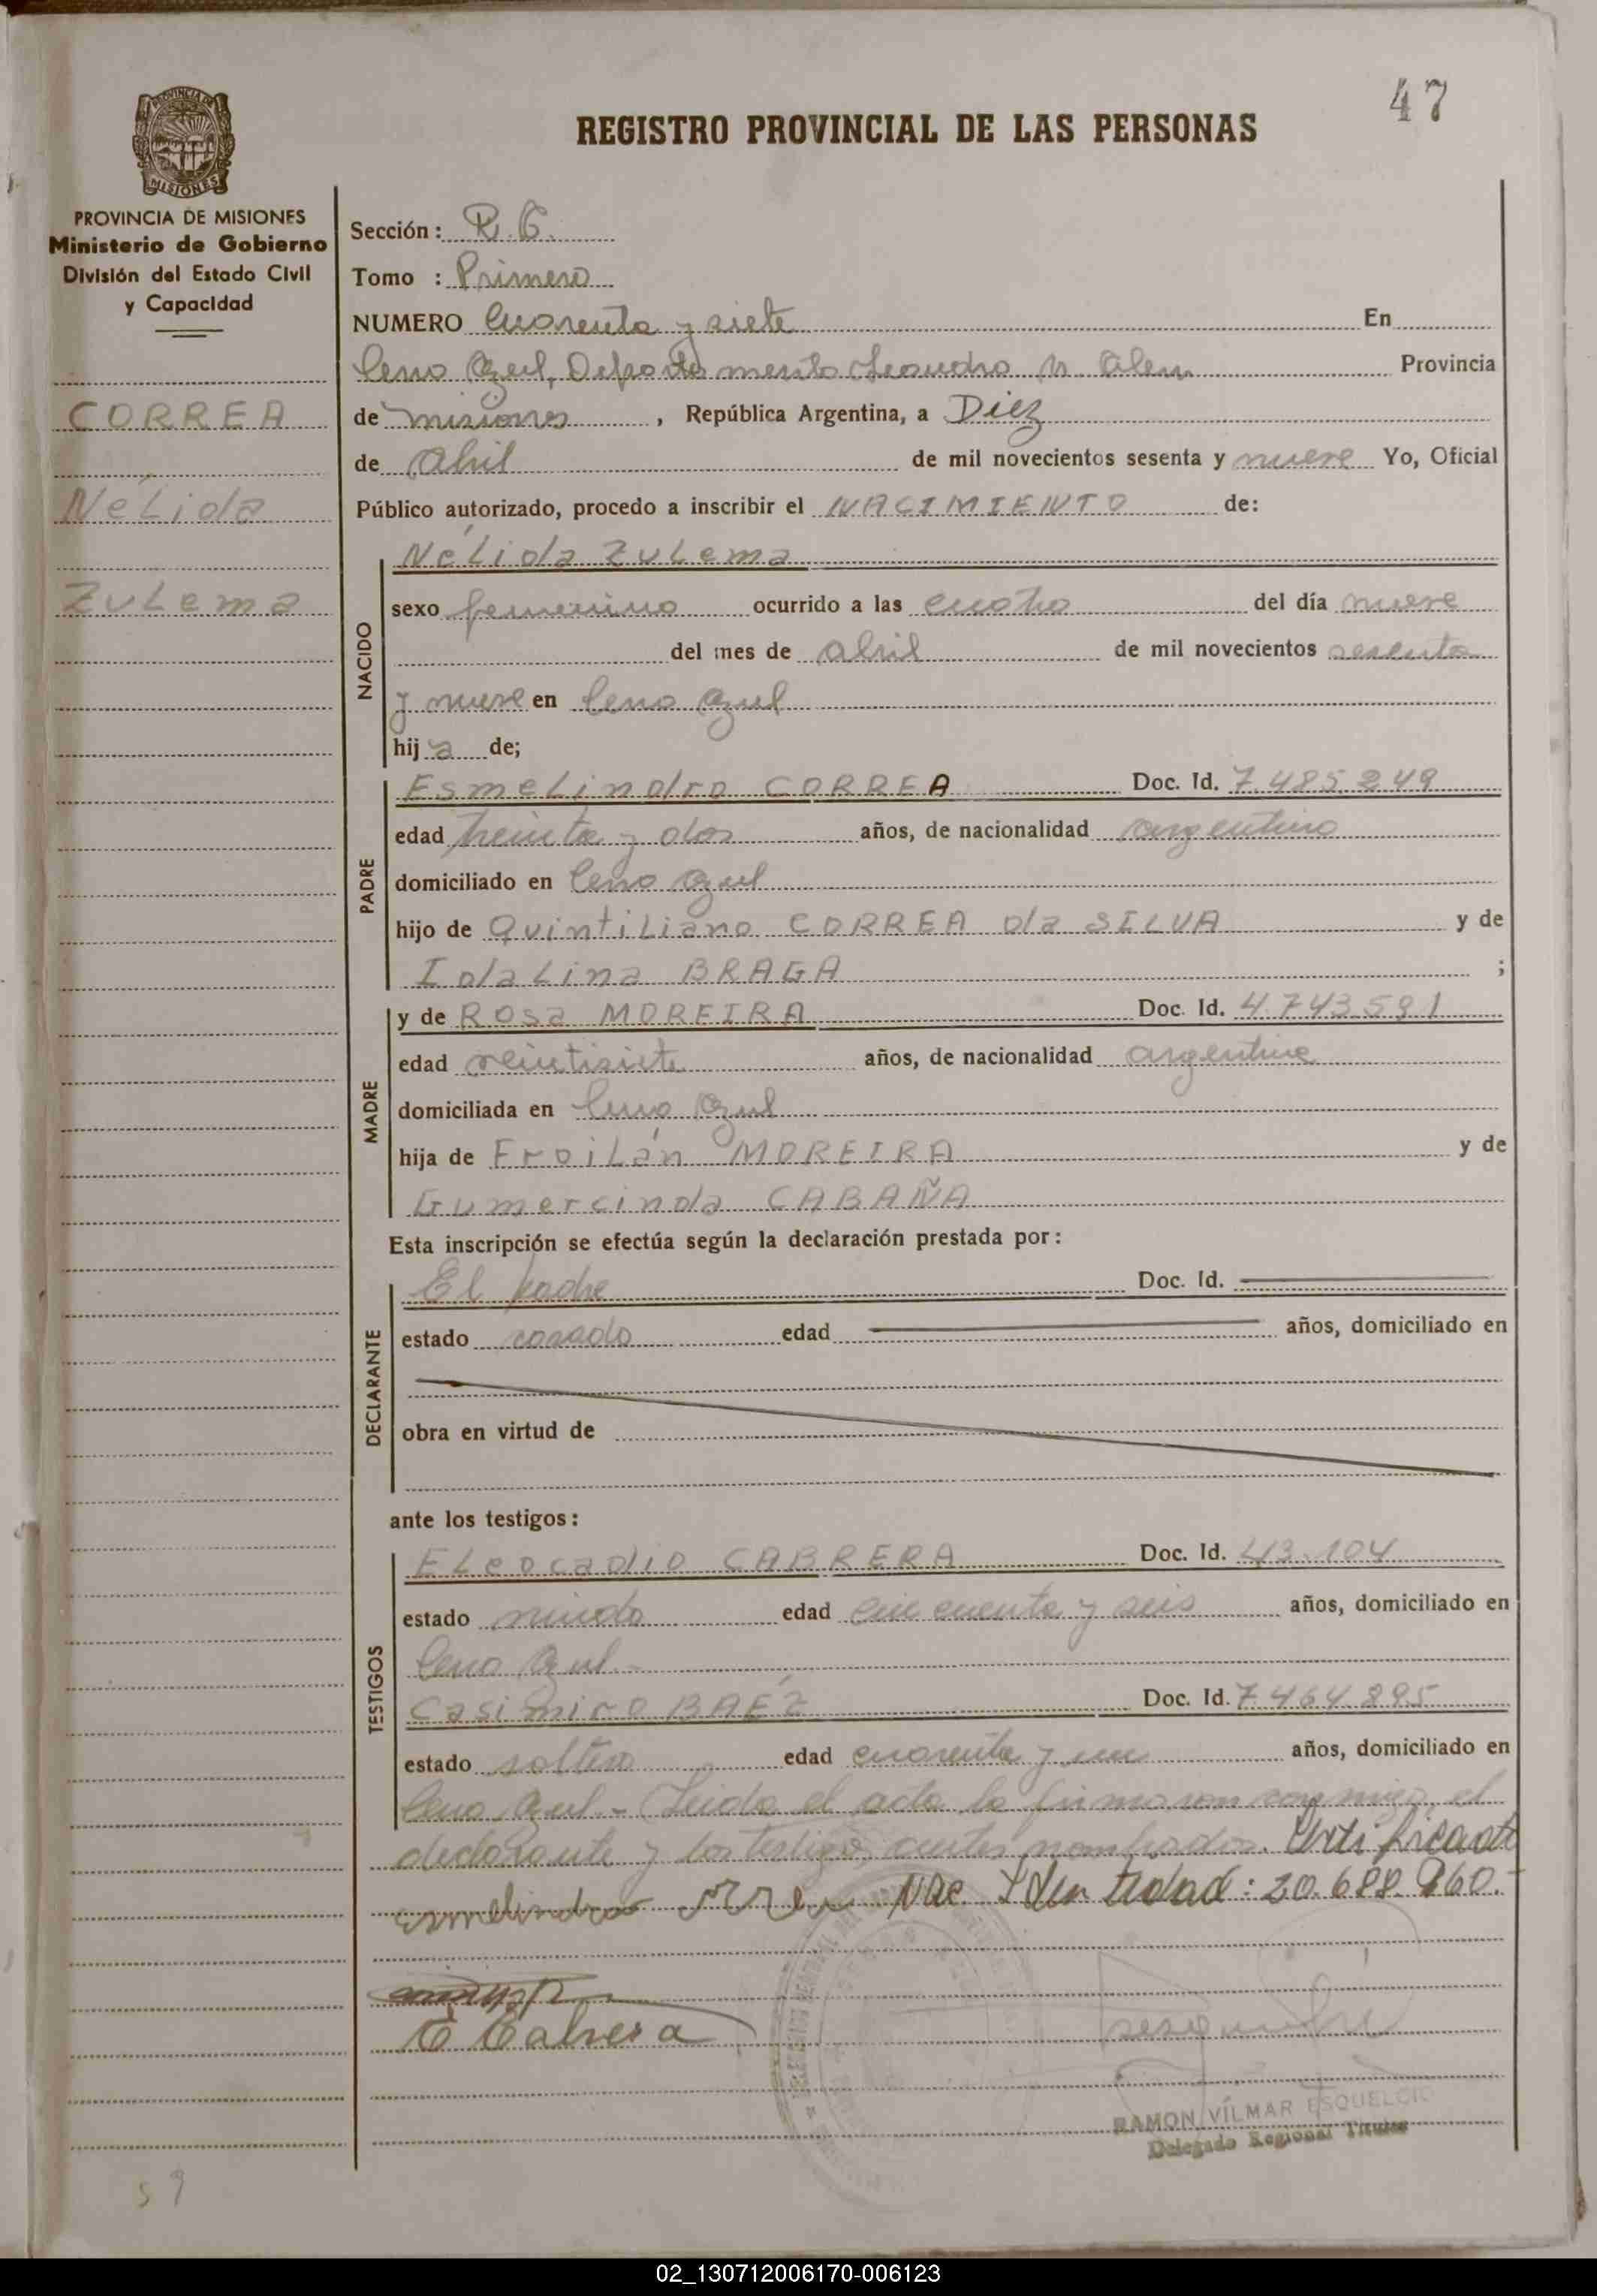 47
REGISTRO PROVINCIAL DE LAS PERSONAS
PROVINCIA DE MISIONES
MISIONES
PROVINCIA DE MISIONES
Ministerio de Gobierno
División del Estado Civil
y Capacidad
CORREA
Nélida
Zulema
Sección: R.C.
Tomo : Primero
NUMERO Cuarenta y siete En
Cerro Azul, Departamento Leandro N. Alem Provincia
de Misiones, República Argentina, a Diez
de Abril de mil novecientos sesenta y nueve Yo, Oficial
Público autorizado, procedo a inscribir el NACIMIENTO de:
NACIDO
Nélida Zulema
sexo femenino ocurrido a las cuatro del día nueve
del mes de abril de mil novecientos sesenta
y nueve en Cerro Azul
hij a de;
PADRE
Esmelindro CORREA Doc. Id. 7.485.249
edad treinta y dos años, de nacionalidad argentino
domiciliado en Cerro Azul
hijo de Quintiliano CORREA da SILVA y de
Idalina BRAGA ;
MADRE
y de Rosa MOREIRA Doc. Id. 4.743.591
edad veintisiete años, de nacionalidad argentina
domiciliada en Cerro Azul
hija de Froilán MOREIRA y de
Gumercinda CABAÑA
Esta inscripción se efectúa según la declaración prestada por:
DECLARANTE
El padre Doc. Id.
estado casado edad años, domiciliado en
obra en virtud de
ante los testigos:
TESTIGOS
Eleocadio CABRERA Doc. Id. 43.104
estado viudo edad cincuenta y seis años, domiciliado en
Cerro Azul
Casimiro BAÉZ Doc. Id. 7464.895
estado soltero edad cuarenta y un años, domiciliado en
Cerro Azul - Leida el acta la firmaron conmigo, el
declarante y los testigos antes nombrados. Certificado
Esmelindro Correa Nac Identidad: 20.688.960.-
E Cabrera
RAMON VILMAR ESQUELCIC
Delegado Regional Titular
59
02_130712006170-006123